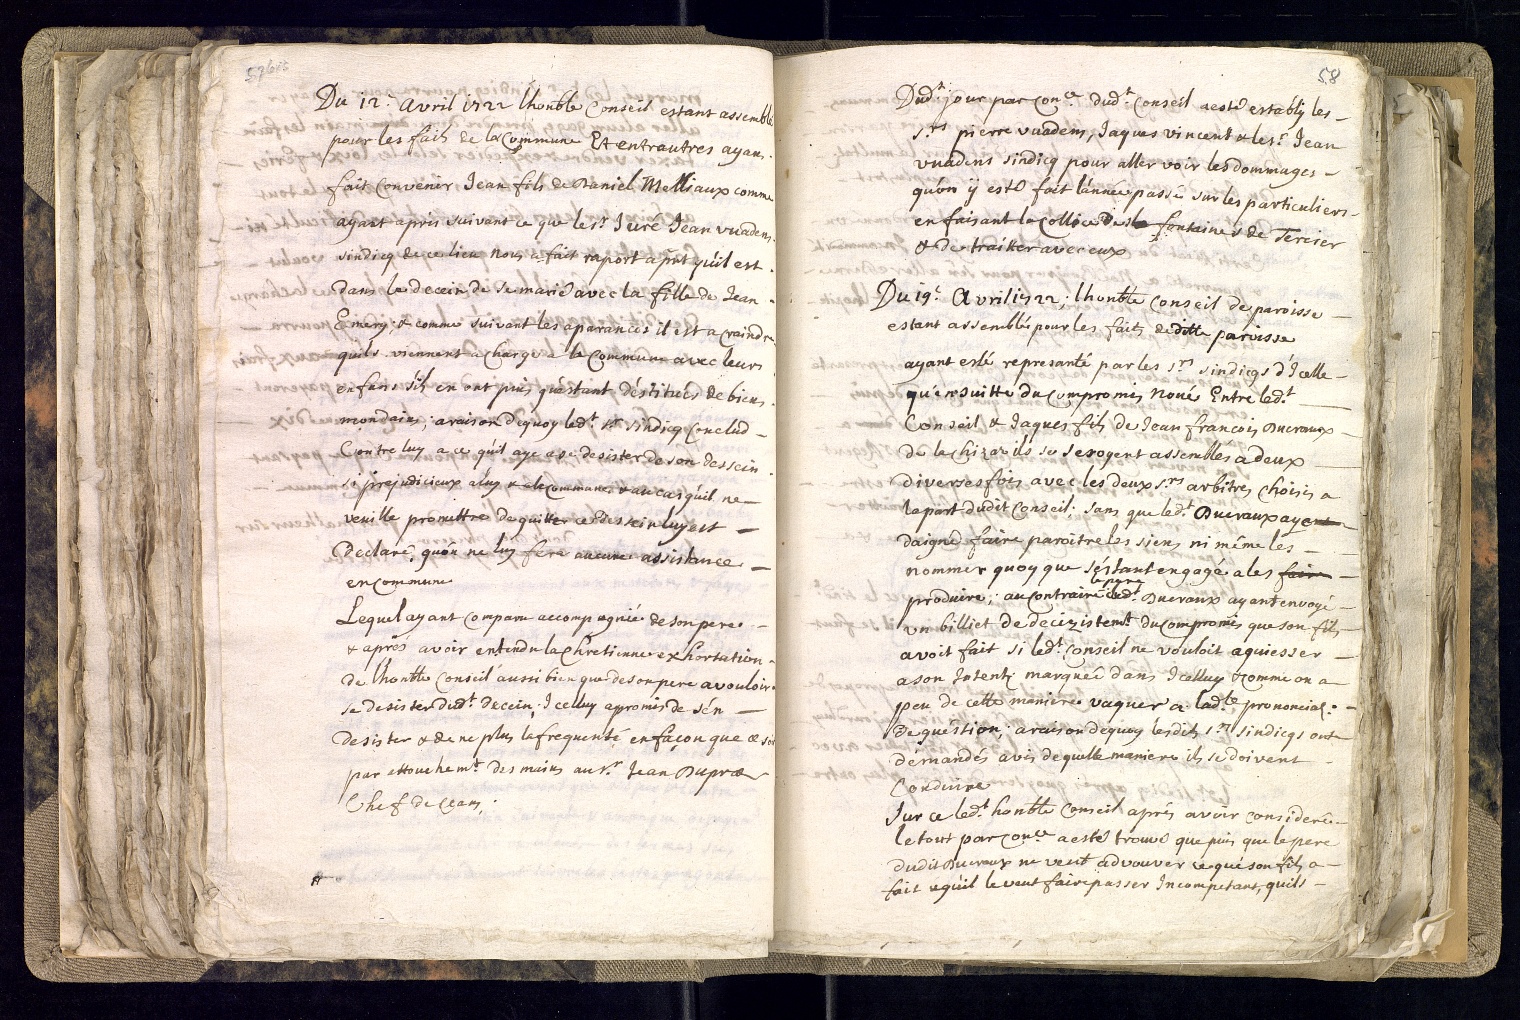 57bis
Du 12.e Avril 1722 lhonble Conseil estant assemblé
pour les faits de la Commune Et entrautres ayans
fait convenir Jean fils de Daniel Melliaux comme
ayant apris suivant ce que le sr. Juré Jean vuadens
sindicq de ce lieu nous a fait raport a prst quil est
dans le decein de se marié avec la fille de Jean
Emery; & comme suivant les aparances il est a craindre
quils viennent a charge a la Commune avec leurs
enfans s'ils en ont puis questant déstitués de biens
mondains; a raison dequoy led.t sr sindicq Conclud
Contre luy a ce quil aye a se desister de son dessein
si prejudicieux a luy & a la Commune & au cas quil ne
veuille promettre de quitter ce dessein luy est
declaré, quon ne luy fera aucune assistance
en Commune
Lequel ayant comparu accompagnié de son pere
& aprés avoir entendu la Chretienne exhortation
de lhonble Conseil aussi bien que de son pere a vouloir
se desister dud.t decein; Icelluy a promis de s'en
desister & de ne plus la frequenté en façon que ce soi
par attouchemt. des mains au sr. Jean Dupraz
Chef de Ceans;
58
Dud.t jour par Con.ce dud.t Conseil a esté establÿ les
s.rs pierre vuadens, Jaques vincent & le sr. Jean
vuadens sindicq pour aller voir les dommages
qu'on ÿ esté fait l'année passé sur les particuliers
en faisant la Collice des fontaines de Tercier
& de traitter avec eux
Du 19.e Avril 1722. lhonble Conseil de paroisse
estant assemblé pour les faits de ditte paroisse
ayant esté represanté par les s.rs sindicqs d'Icelle
qu'ensuitte du Compromis noué Entre led.t
Conseil & Jaques fils de Jean francois Ducraux
de la Chizaz ils se seroyent assemblés a deux
diverses fois avec les deux s.rs arbitres choisis a
la part dudit Conseil; sans que led.t Ducraux aye
daigné faire paroitre les siens ni même les
nommer quoy que s'estant engagé a les fair
produire; au Contraire le pere dud.t Ducraux ayant envoyé
un billiet de decezistemt. du Compromis que son fils
avoit fait si led.t Conseil ne vouloit aquiesser
a son Intent. marquée dans Icelluy & comme on a
peu de cette maniere vaquer a lad.te prononciat.
de question; a raison dequoy lesdits s.rs sindicqs ont
démandés avis de quelle maniere ils se doivent
Conduire
Sur ce led.t honble Conseil aprés avoir consideré
le tout par Con.ce a esté trouvé que puis que le pere
dudit Ducraux ne veut advouver ce que son fils a
fait & quil le veut faire passer Incompetant, quils